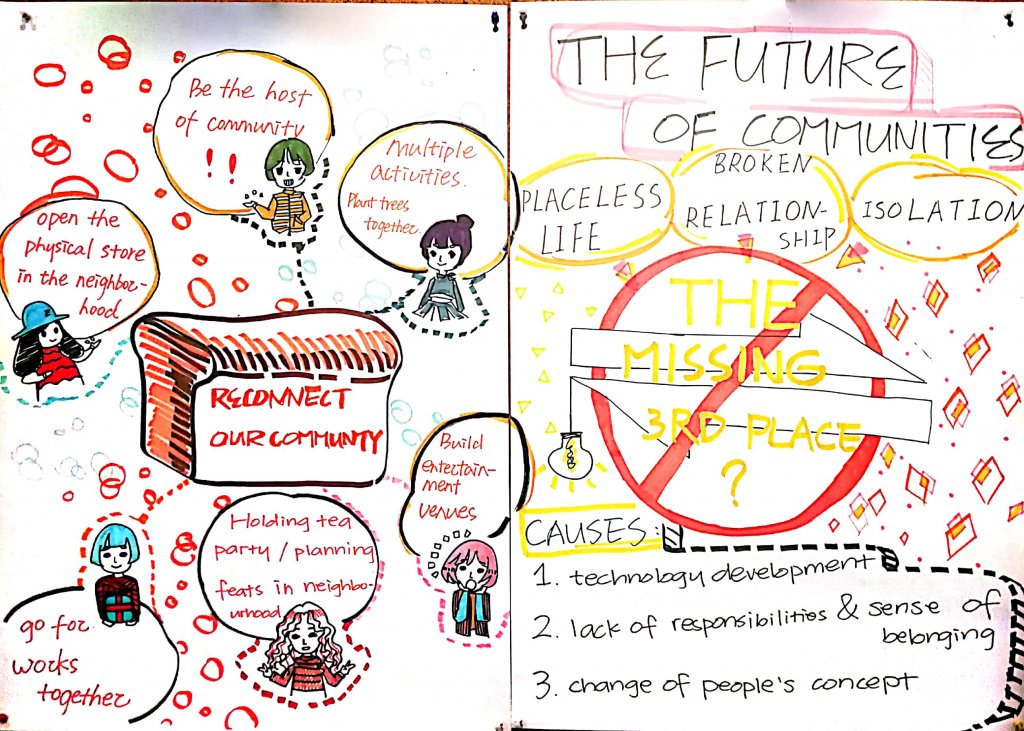 Be the host
of community
!!
Multiple
activities.
Plant trees
together.
open the
physical store
in the neighbor-
hood
RECONNECT
OUR COMMUNTY
Build
entertain-
ment
venues
Holding tea
party / planning
feats in neighbo-
urhood
go for
works
together
THE FUTURE
OF COMMUNITIES
PLACELESS
LIFE
BROKEN
RELATION-
SHIP
ISOLATION
THE
MISSING
3RD PLACE
?
CAUSES:
1. technology development
2. lack of responsibilities & sense of
belonging
3. change of people's concept